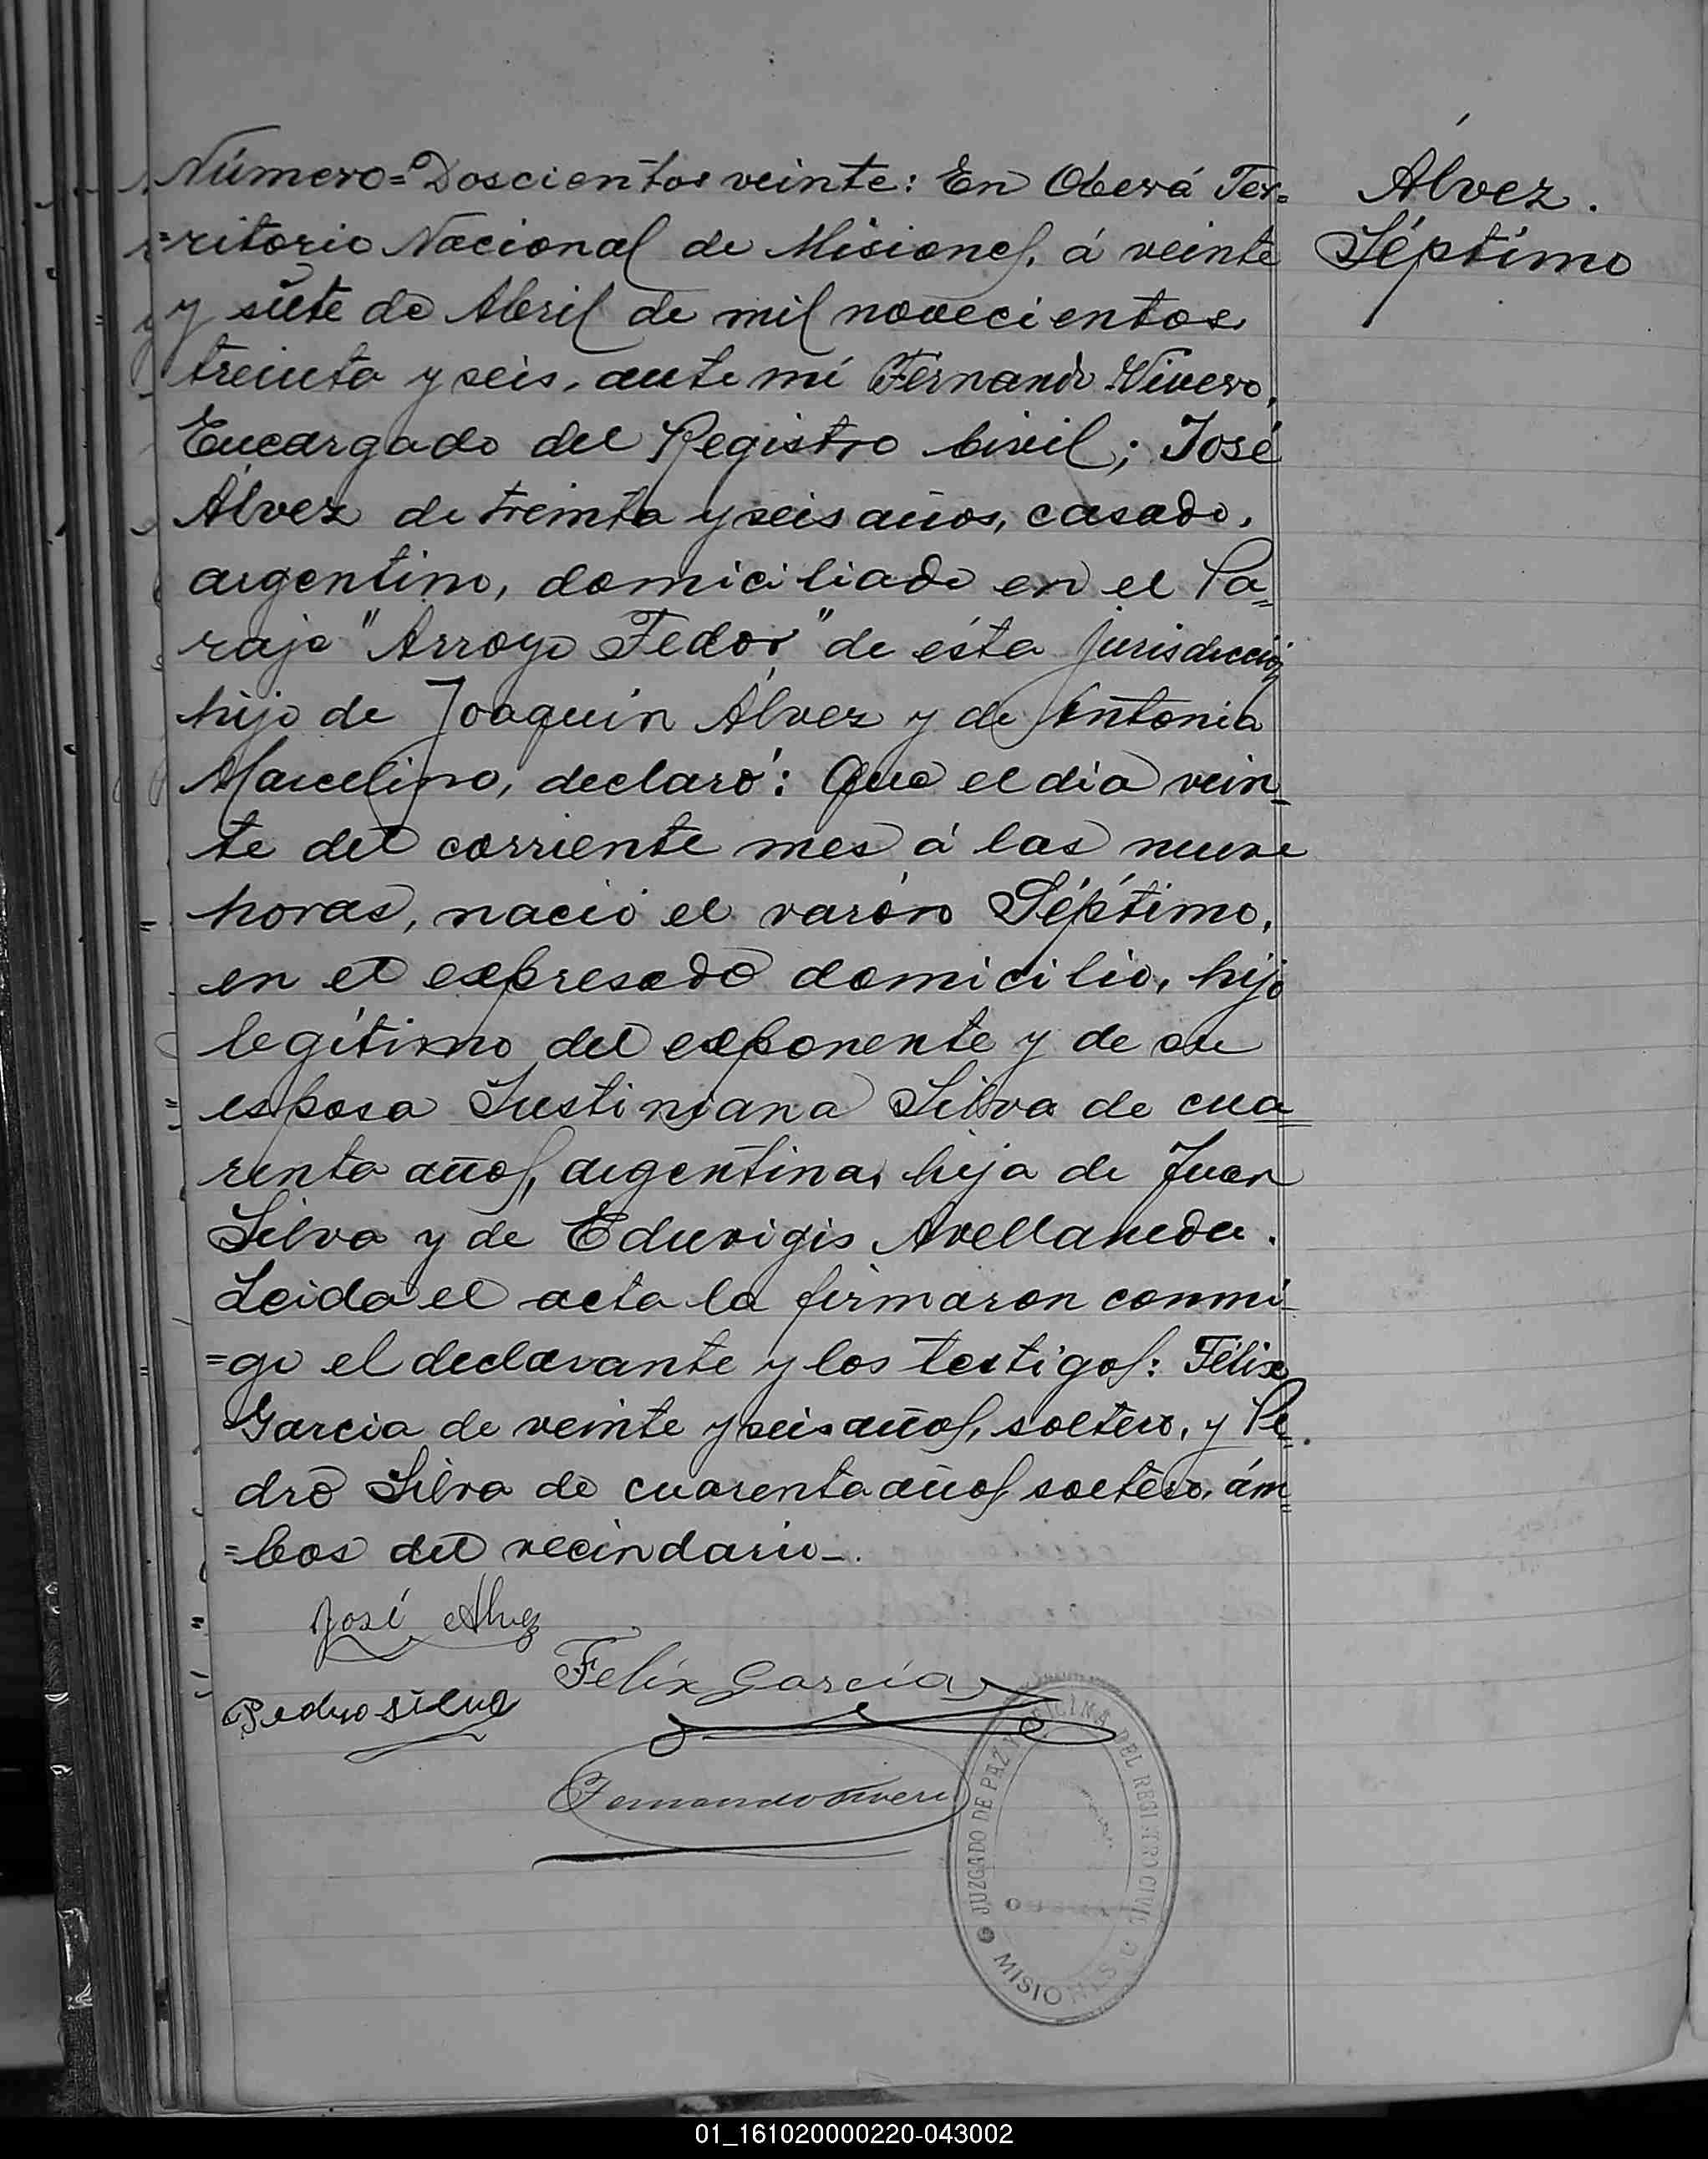 Número= Doscientos veinte: En Oberá Ter=
=ritorio Nacional de Misiones, á veinte
y siete de Abril de mil novecientos
treinta y seis, ante mí Fernando Vivero,
Encargado del Registro Civil; José
Álvez de treinta y seis años, casado,
argentino, domiciliado en el Pa=
raje "Arroyo Fedor" de ésta jurisdicción
hijo de Joaquín Álvez y de Antonia
Marcelino, declaró: Que el día vein=
te del corriente mes á las nueve
horas, nació el varón Séptimo,
en el expresado domicilio, hijo
legítimo del exponente y de su
esposa Justiniana Silva de cua=
renta años, argentina, hija de Juan
Silva y de Eduvigis Avellaneda.
Leida el acta la firmaron conmi=
=go el declarante y los testigos: Félix
García de veinte y seis años, soltero, y Pe=
dro Silva de cuarenta años soltero, ám=
=bos del vecindario_.
Álvez.
Séptimo
José Alvez
Felix Garcia
Pedro silva
Fernando Vivero
JUZGADO DE PAZ Y OFICINA DEL REGISTRO CIVIL
MISIONES
01_161020000220-043002